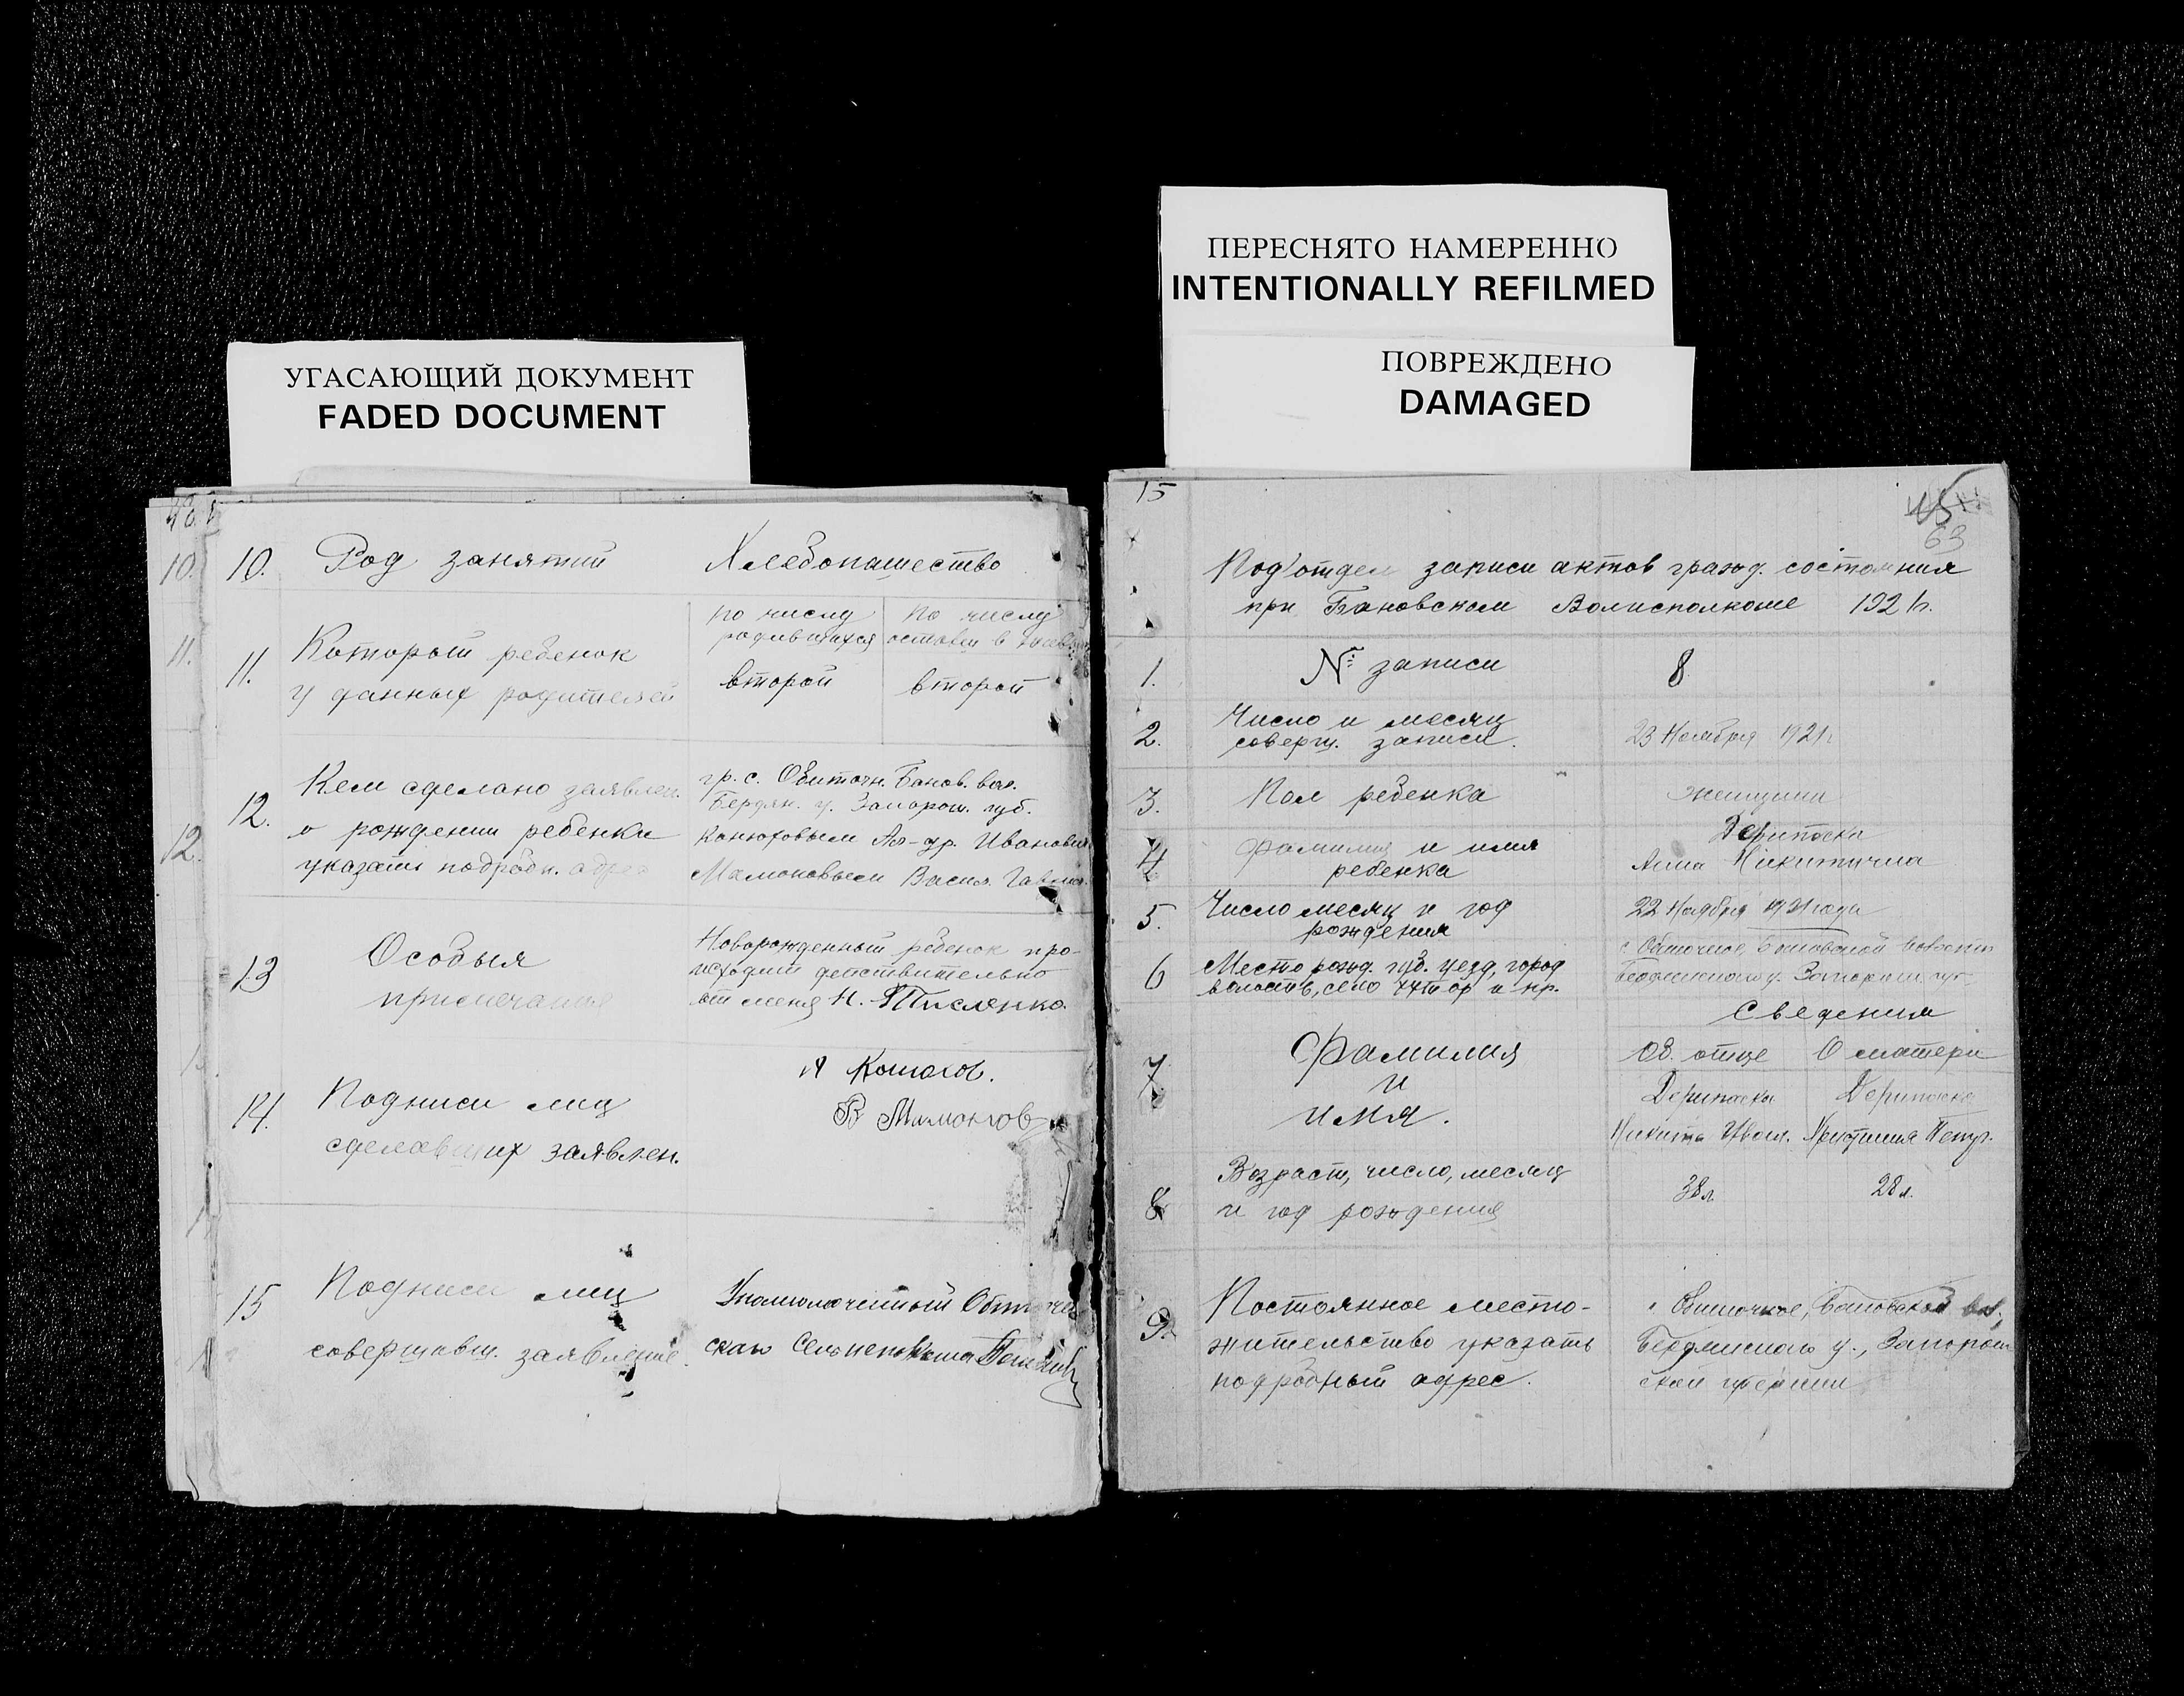 УГАСАЮЩИЙ ДОКУМЕНТ
FADED DOCUMENT
10.
11.
12.
10. Род занятий Хлебопашество
11. Который ребенок
у данных родителей
по числу
родившихся
второй
по числу
оставш. в
второй
12. Кем сделано заявлен.
о рождении ребенка
указать подробн. адрес
гр. с. Обиточн. Банов. вол.
Бердян. у. Запорож. губ.
Конюховым Ал-др. Иванович
Мамоновым Васил.
13 Особыя
примечания
Новорожденный ребенок про-
исходит действительно
от меня Н.
14. Подписи лиц
сделавших заявлен.
А Конюхов.
В Мамонтов
15 Подписи лиц
совершивш. заявление.
Уполномоченный
ПЕРЕСНЯТО НАМЕРЕННО
INTENTIONALLY REFILMED
ПОВРЕЖДЕНО
DAMAGED
15
63
Под'отдел записи актов гражд. состояния
при Бановском Волисполкоме 1921г.
1. № записи 8
2. Число и месяц
соверш. записи.
23 Ноября 1921г.
3. Пол ребенка женщина
4 Фамилия и имя
ребенка
Дерипаска
Анна Никитична
5. Число месяц и год
рождения
22 Ноября 1921 года
6 Место рожд. губ. уезд, город
волость, село хутор и пр.
с Обиточное, Бановской волости
Бердянского у. Запорож. губ
Сведения
7. Фамилия
и
имя.
Об. отце
Дерипаска
Никита Иван.
О матери
Дерипаска
Христиния Петр.
8 Возраст, число, месяц
и год рождения
38л. 28л.
9. Постоянное место-
жительство указать
подробный адрес.
Обиточное, Бановской вол,
Бердянского у., Запорож
ской губернии